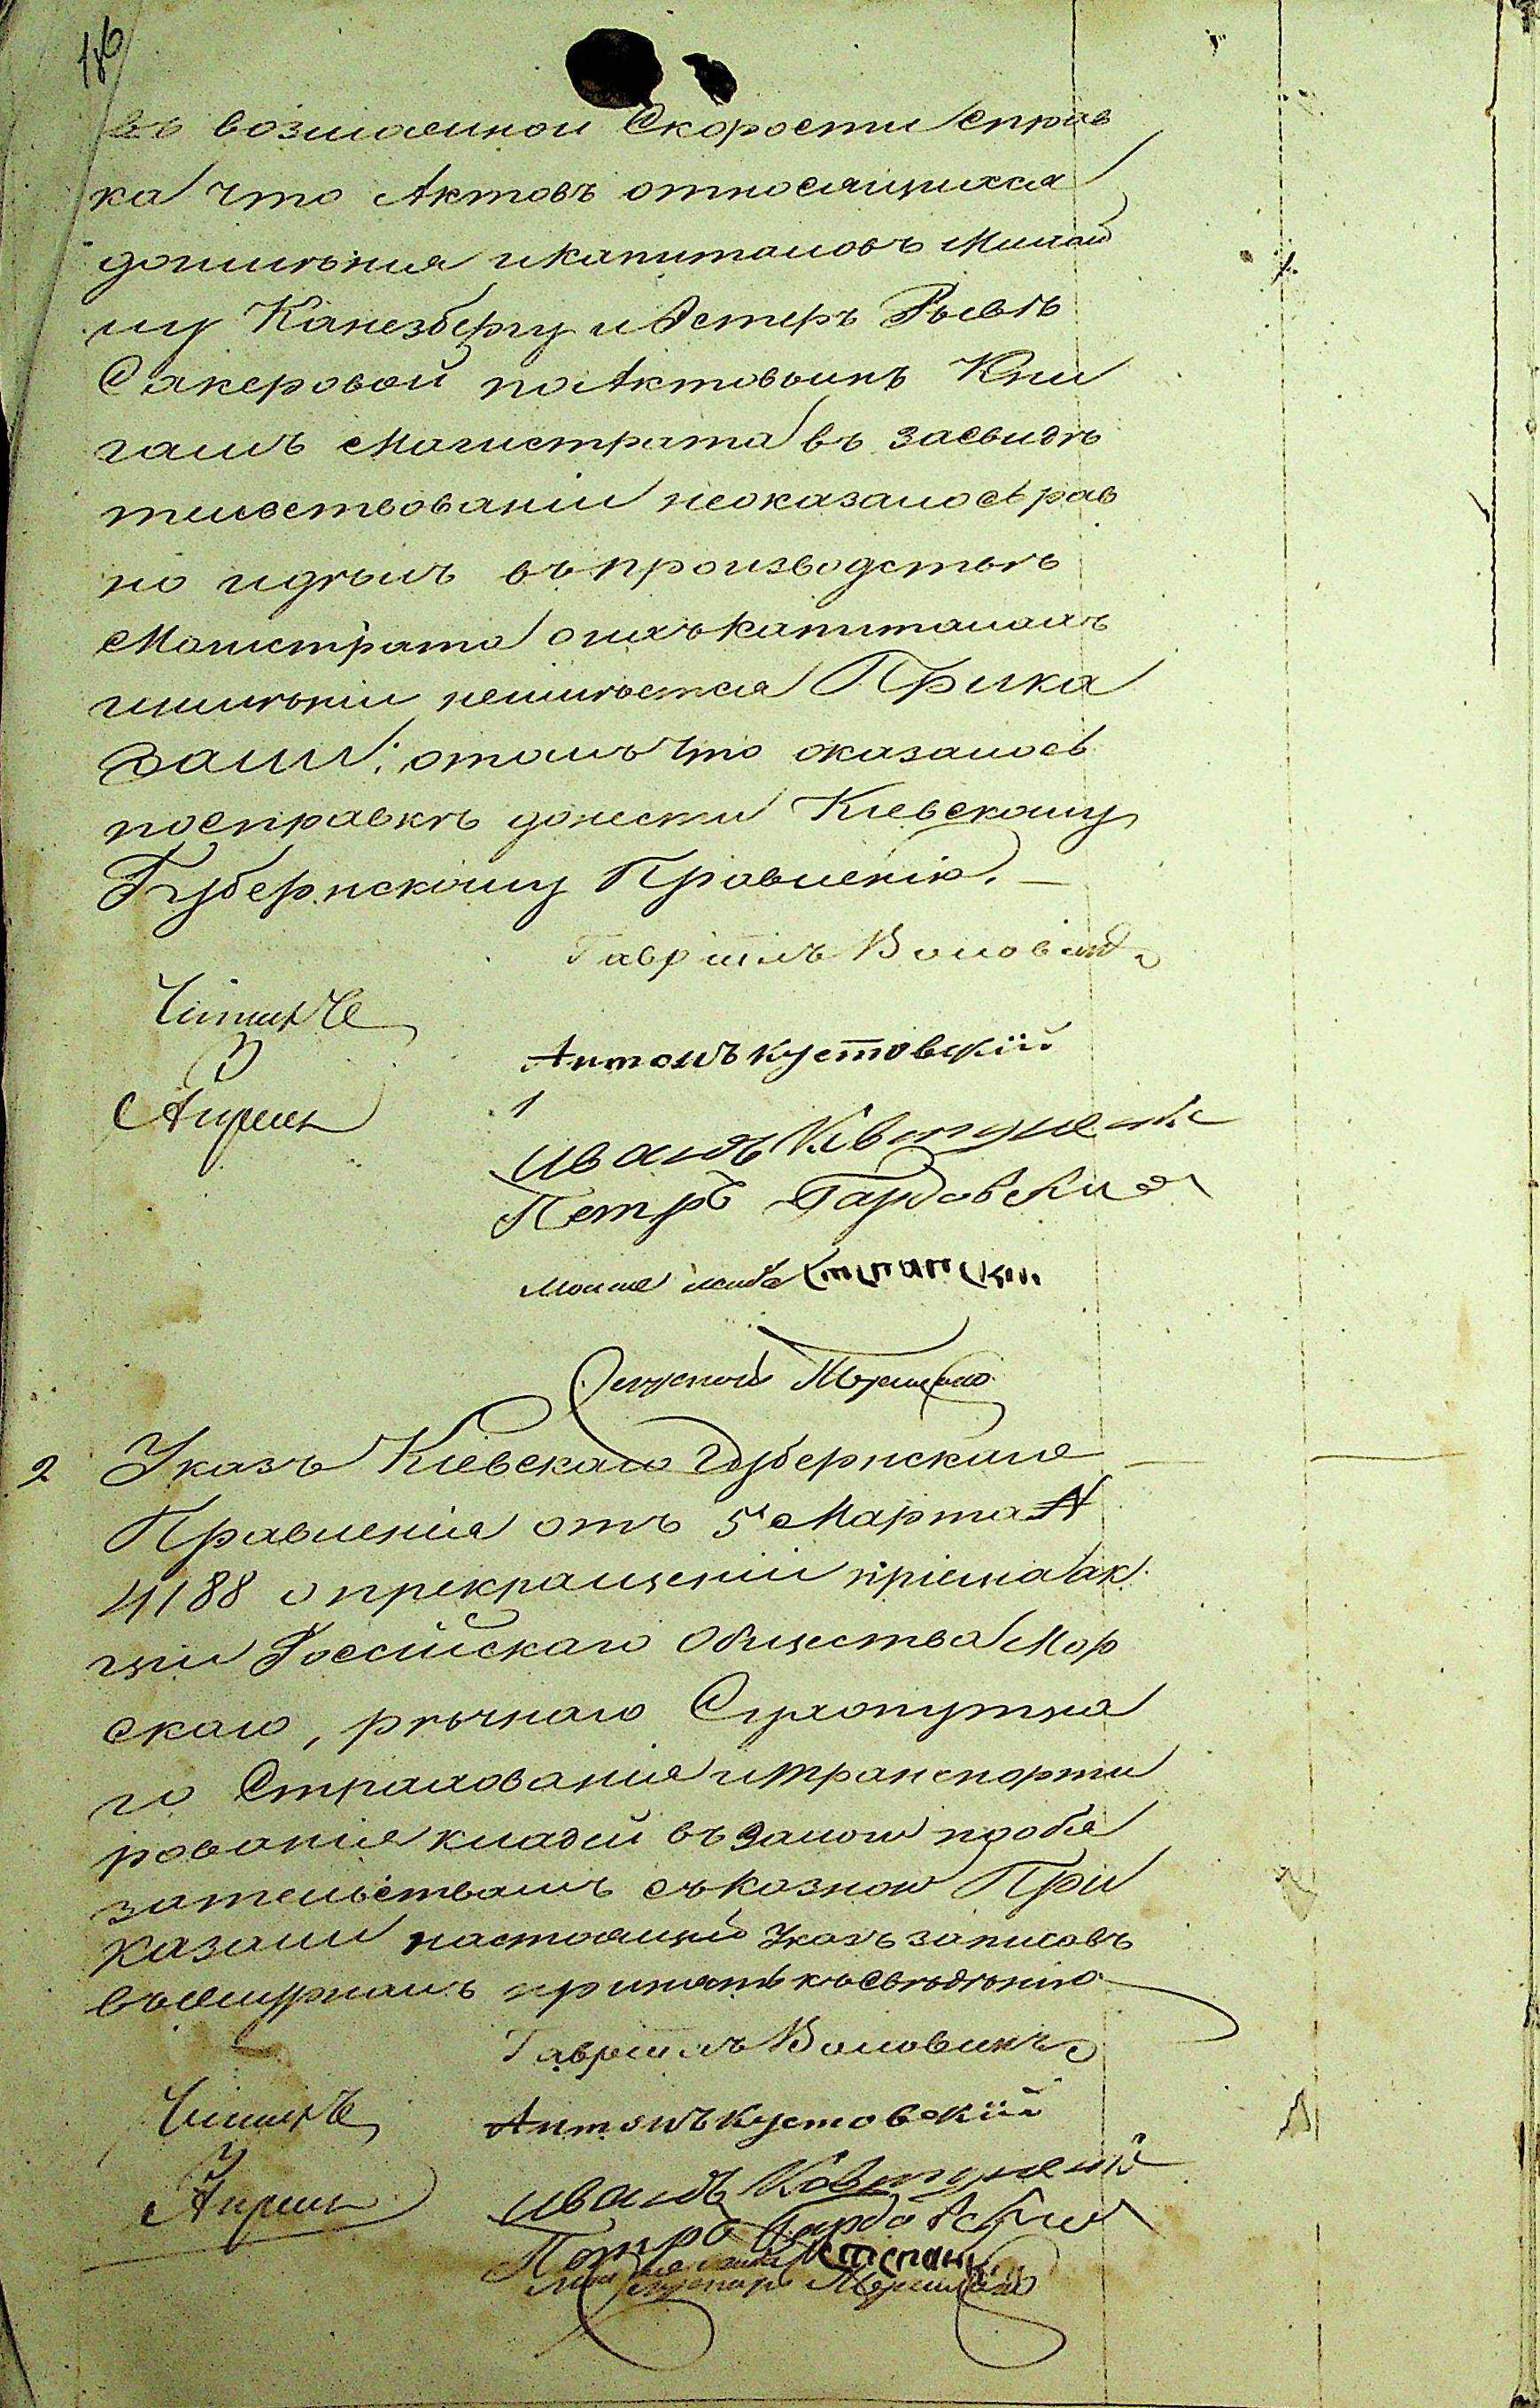 186
въ возможной Скорости справ
ка что Актовъ относящихся
до имѣнія и капиталовъ
му Канезбергу и Эстеръ Рывкѣ
Сакеровой по Актовымъ Кни
гамъ Магистрата въ засвидѣ
тельствованіи неоказалось рав
но и дѣлъ въ производствѣ
Магистрата о ихъ капиталахъ
и имѣніи неимѣется Прика
зали: о томъ что оказалось
по справкѣ донести Кіевскому
Губернскому Правленію.
Гавріилъ
Антонъ Кустовскій
3
Апрѣля
Иванъ
Петръ Гарбовскій
2 Указъ Кіевскаго Губернскаго
Правленія отъ 5 Марта №
4188 о прекращеніи пріема ак
ціи Россійскаго Общества Мор
скаго, рѣчнаго Сухопутна
го Страхованія и транспорти
рованія кладей въ залоги по обя
зательствамъ съ казною При
казали настоящій Указъ записавъ
въ журналъ принять къ свѣдѣнію
Гавріилъ
Антонъ Кустовскій
3
Апрѣля
Иванъ
Петръ Гарбовскій